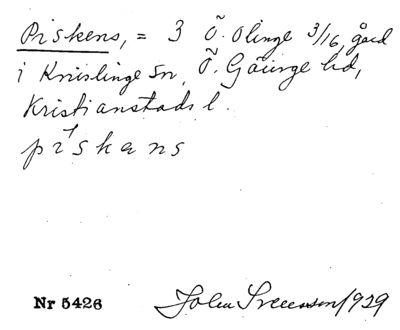 Priskens, = 3 Ö. Olinge 3/16, gård
i Knislinge sn, Ö. Göinge hd,
Kristianstads l.
priskans
Nr 5426 John Svensson 1929